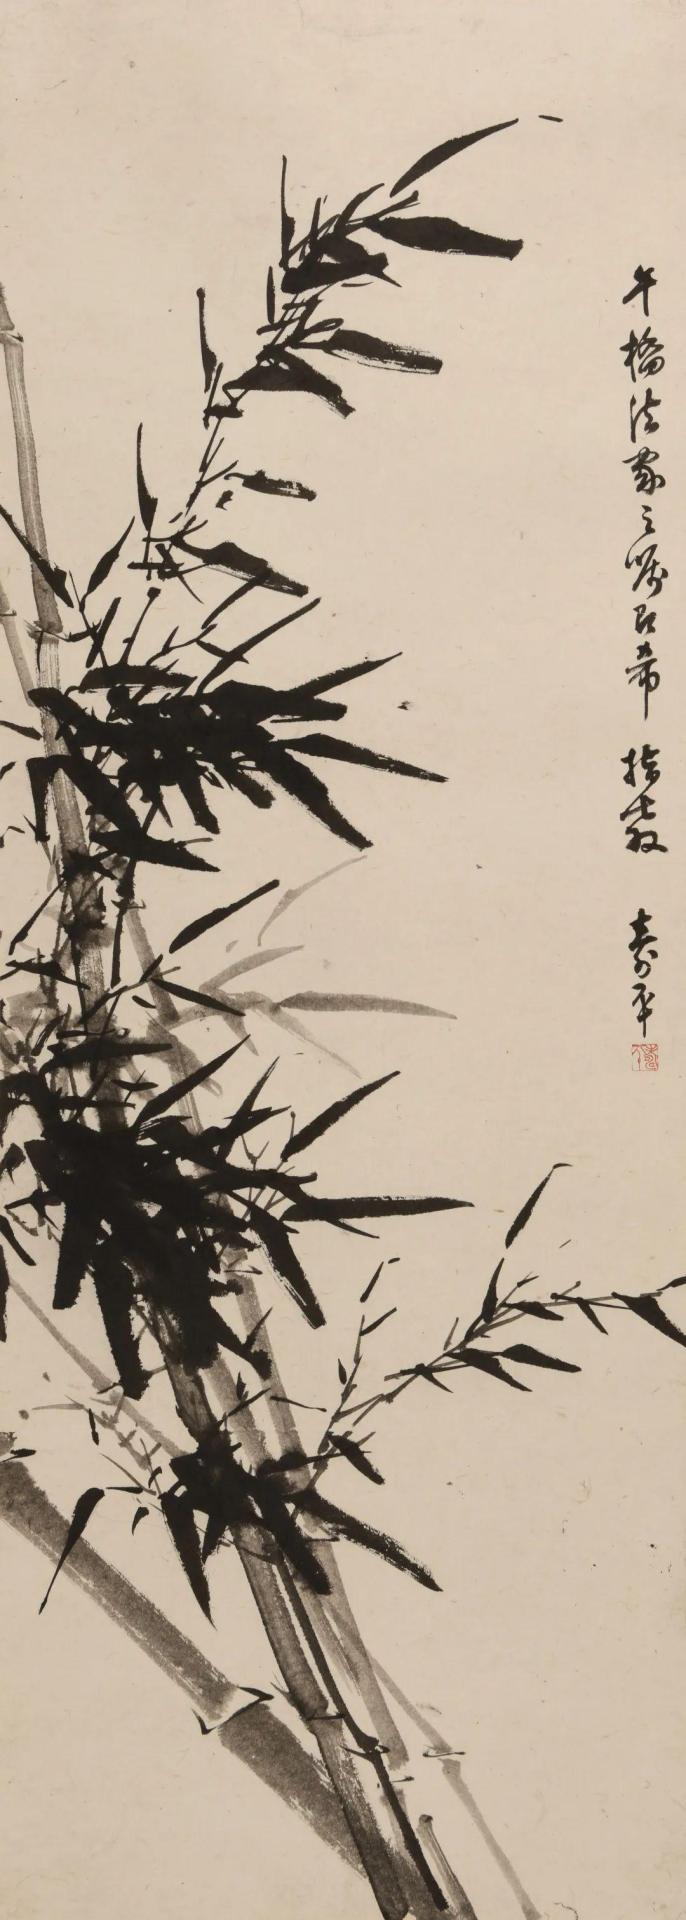 午橋法家之嘱即希 指教 壽平